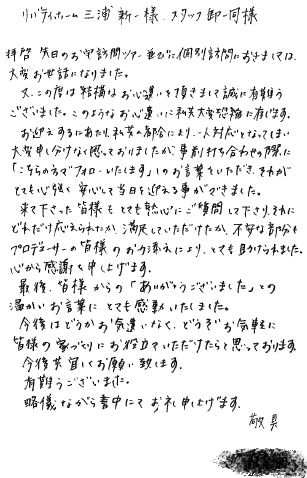 リバティホーム 三浦 新一様 スタッフ御一同様
拝啓 先日のお宅訪問ツアー並びに個別訪問におきましては、
大変お世話になりました。
又、この度は結構なお心遣いを頂きまして誠に有難う
ございました。このようなお心遣いに私共大変恐縮に存じます。
お迎えするにあたり、私共の都合により、一人対応となってしまい
大変申し分けなく思っておりましたが、事前打ち合わせの際に
「こちらの方でフォローいたします」とのお言葉をいただき、それが
とても心強く 安心して当日を迎える事ができました。
来て下さった皆様もとても熱心にご質問して下さり、それに
どれだけ応えられたか、満足していただけたか、不安な部分も
プロデューサーの皆様のお力添えにより、とても助けられました。
心から感謝を申し上げます。
最後、皆様からの「ありがとうございました」との
温かいお言葉にとても感動いたしました。
今後はどうかお気遣いなく、どうぞお気軽に
皆様の家づくりにお役立ていただけたらと思っております。
今後共宜しくお願い致します。
有難うございました。
略儀ながら書中にてお礼申し上げます。
敬具